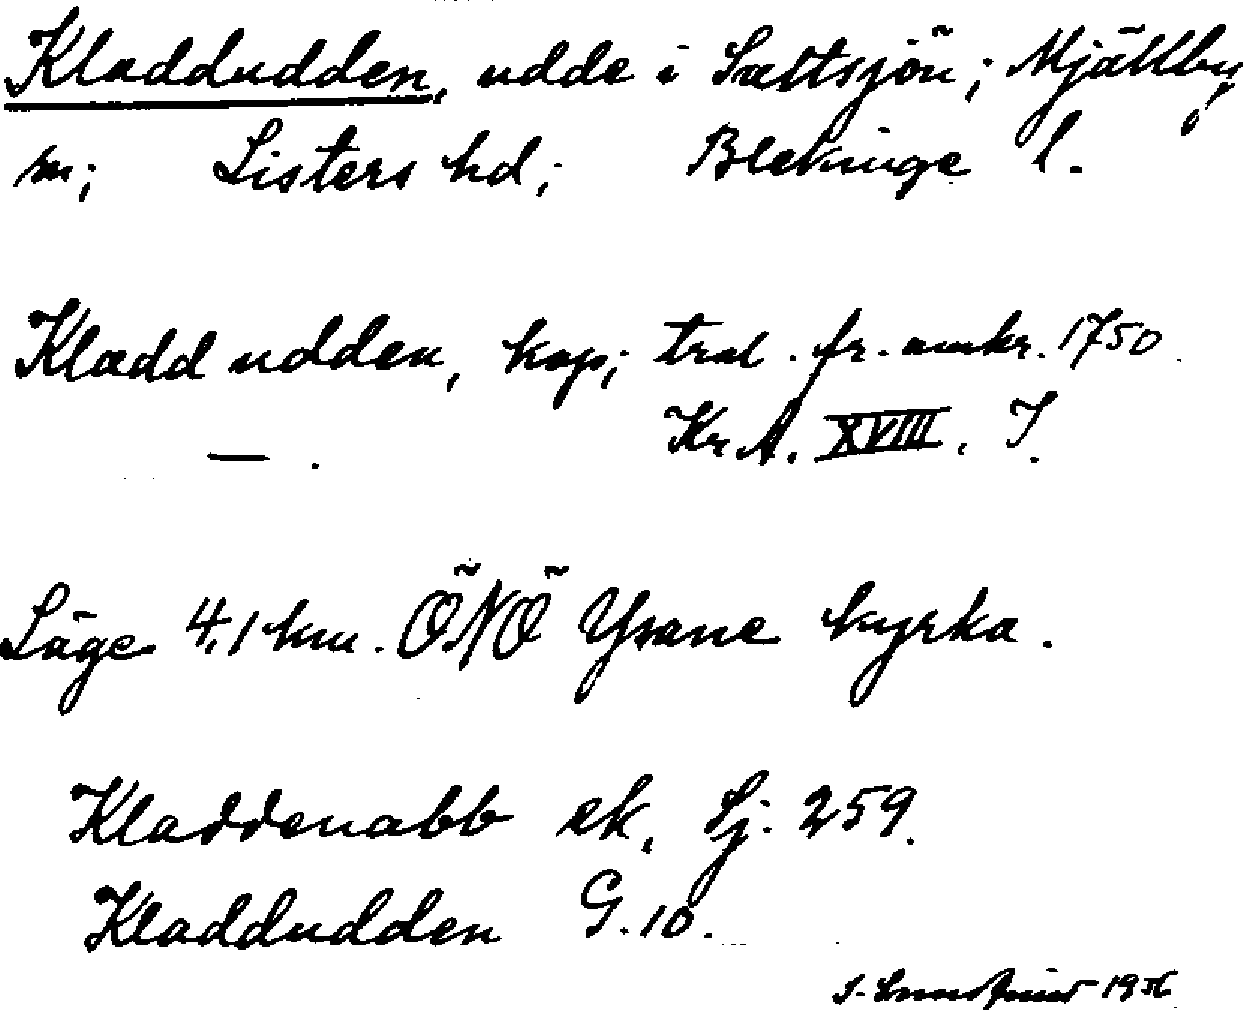 Kladdudden, udde i Saltsjön; Mjällby
sn; Listers hd; Blekinge l.
Kladd udden, kop; tral. fr. omkr. 1750
— . Kr. A. XVIII. I.
Läge 4,1 km. ÖNÖ Ysane kyrka.
Kladdenabb ek. Sj. 259.
Kladdudden G. 10.
1936